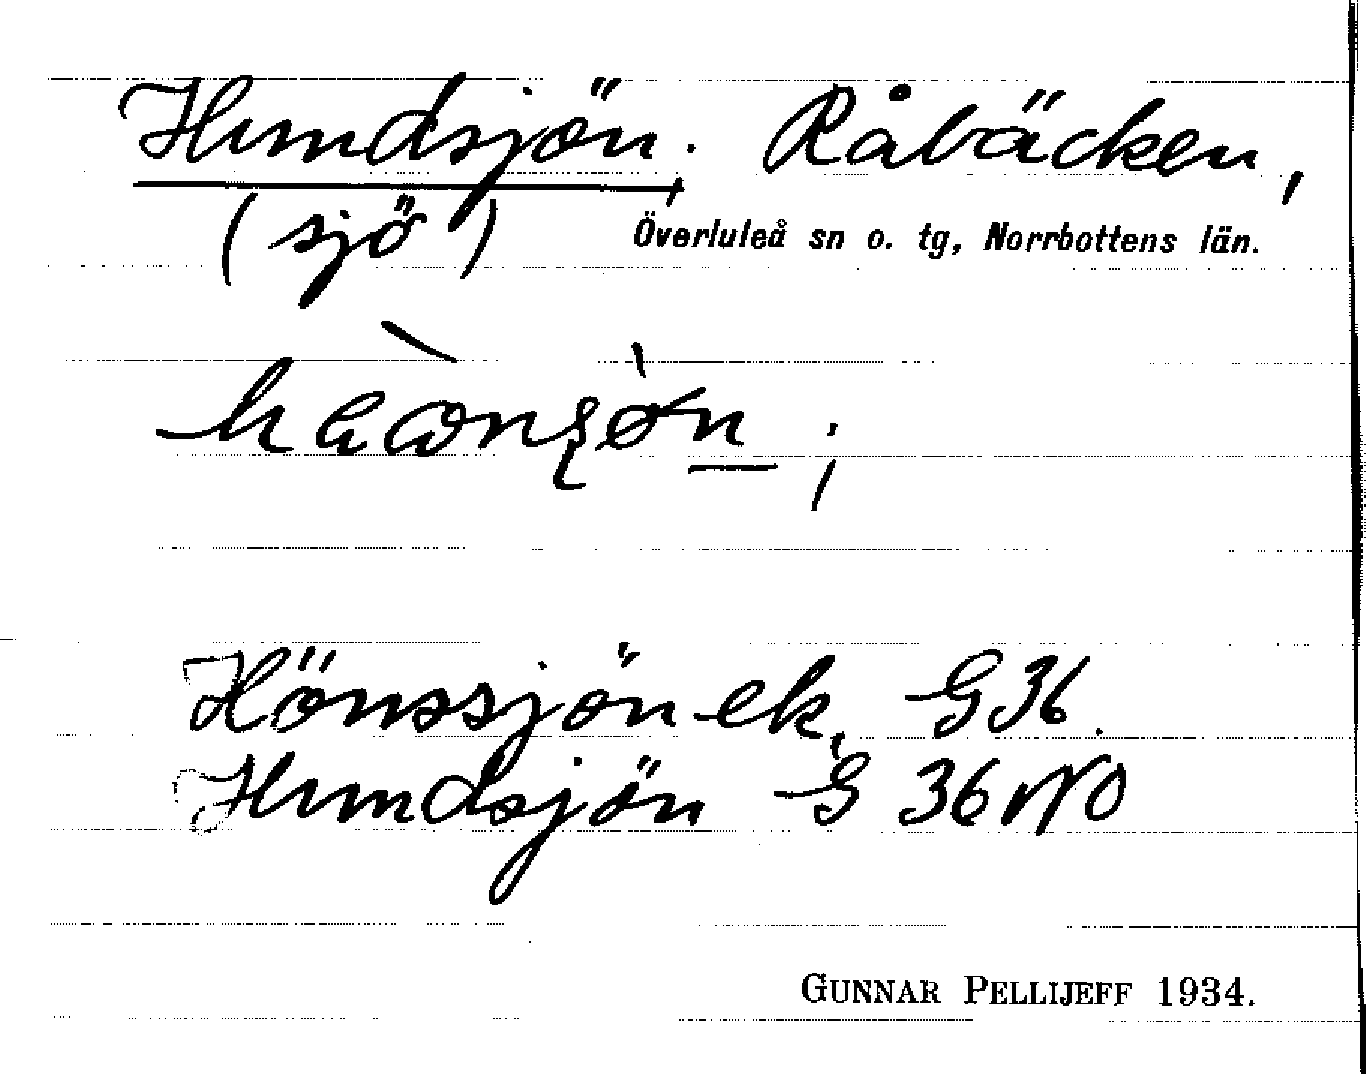 Hundsjön; Råbäcken,
(sjö) Överluleå sn o. tg, Norrbottens län.
Hönssjön ek, G 36.
Hundsjön G 36 NO
GUNNAR PELLIJEFF 1934.